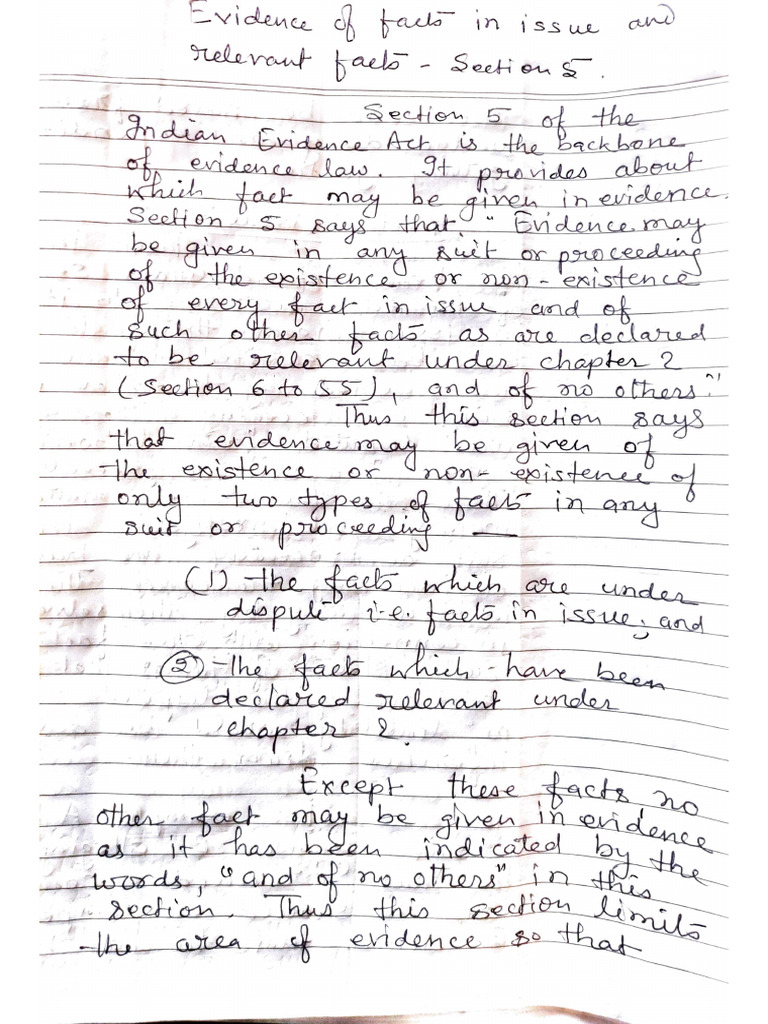 Evidence of facts in issue and
relevant facts - Section 5.
Section 5 of the
Indian Evidence Act is the backbone
of evidence law. It provides about
which fact may be given in evidence.
Section 5 says that "Evidence may
be given in any suit or proceeding
of the existence or non-existence
of every fact in issue and of
such other facts as are declared
to be relevant under chapter 2
(Section 6 to 55), and of no others."
Thus this section says
that evidence may be given of
the existence or non-existence of
only two types of facts in any
suit or proceeding —
(1) the facts which are under
dispute i.e. facts in issue, and
(2) the facts which have been
declared relevant under
chapter 2.
Except these facts, no
other fact may be given in evidence
as it has been indicated by the
words, "and of no others" in this
section. Thus this section limits
the area of evidence so that